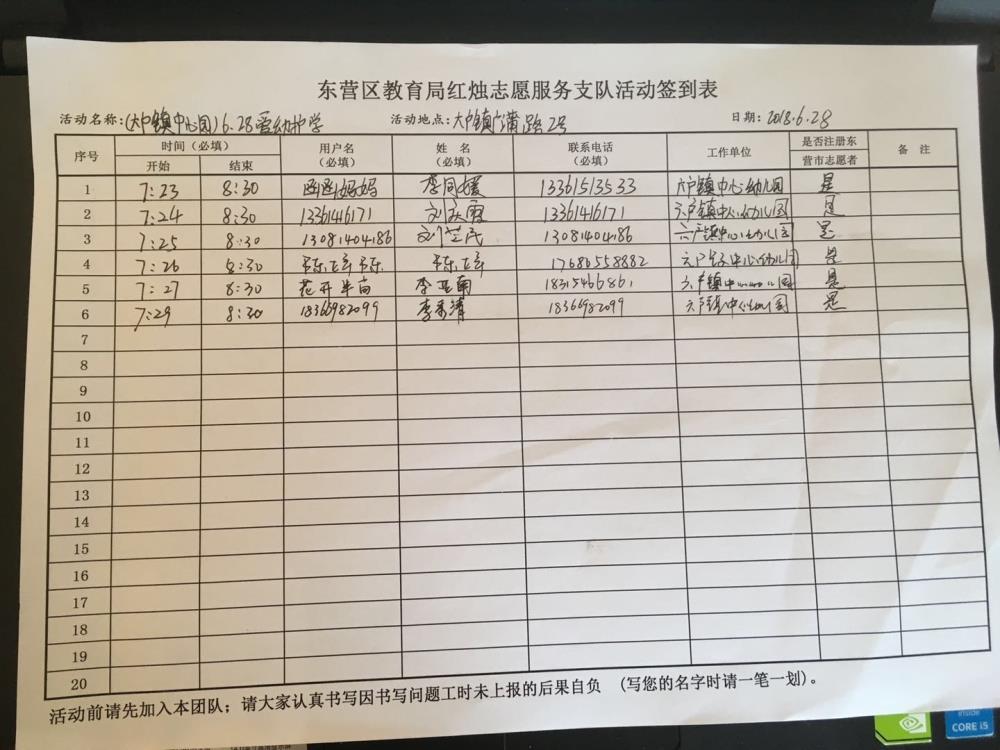 东营区教育局红烛志愿服务支队活动签到表
活动名称：(六户镇中心园)6.28爱幼护学 活动地点：六户镇广蒲路2号 日期：2018.6.28
序号 时间（必填） 用户名（必填） 姓名（必填） 联系电话（必填） 工作单位 是否注册东营市志愿者 备注
开始 结束
1 7:23 8:30 函函妈妈 李同媛 13361513533 六户镇中心幼儿园 是
2 7:24 8:30 1336146171 1336146171 六户镇中心幼儿园 是
3 7:25 8:30 13081404186 刘芝民 13081404186 六户镇中心幼儿园 是
4 7:26 8:30 17686558882 六户镇中心幼儿园 是
5 7:27 8:30 花开半亩 李亚南 18315466861 六户镇中心幼儿园 是
6 7:29 8:30 18366982099 李秀清 18366982099 六户镇中心幼儿园 是
7
8
9
10
11
12
13
14
15
16
17
18
19
20
活动前请先加入本团队；请大家认真书写因书写问题工时未上报的后果自负 （写您的名字时请一笔一划）。
inside
CORE i5